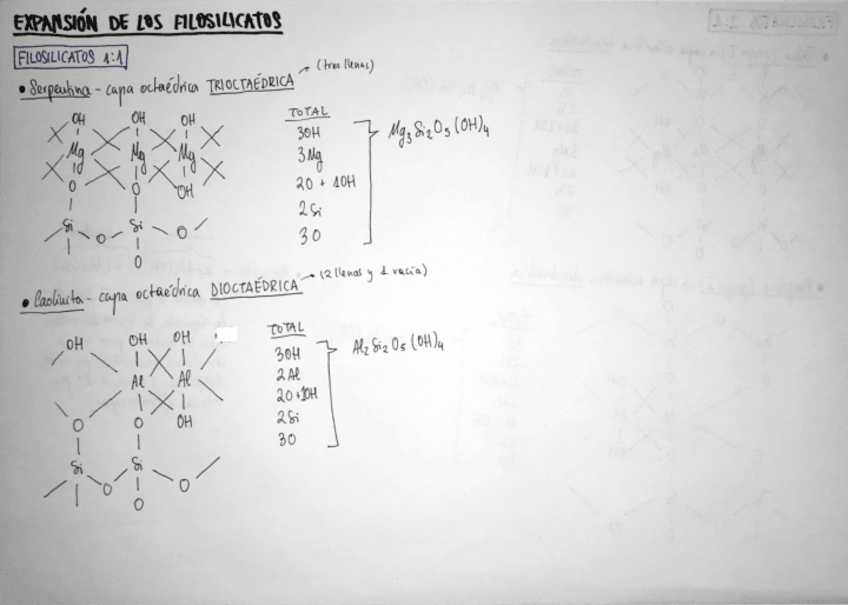 EXPANSIÓN DE LOS FILOSILICATOS
FILOSILICATOS 1:1
• Serpentina - capa octaédrica TRIOCTAÉDRICA (tres llenas)
OH OH OH
Mg Mg Mg
O O OH
Si O Si O
O
TOTAL
3OH
3Mg
2O + 1OH
2Si
3O
Mg3Si2O5(OH)4
• Caolinita - capa octaédrica DIOCTAÉDRICA (2 llenas y 1 vacía)
OH OH OH
Al Al
O O OH
Si Si
O O
O
TOTAL
3OH
2Al
2O+1OH
2Si
3O
Al2Si2O5(OH)4